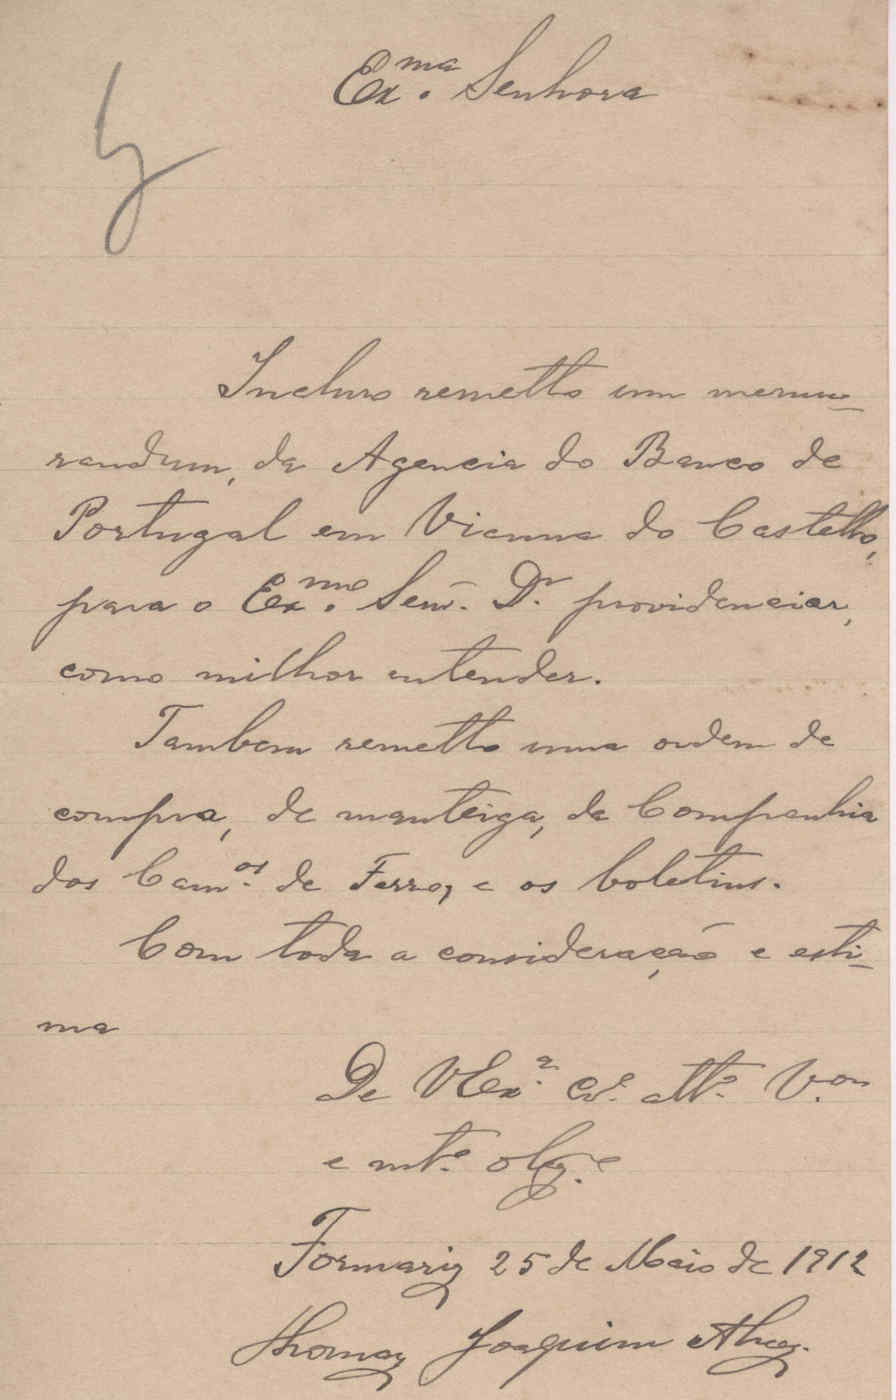 Ex.ma Senhora
Incluso remetto um memo-
randum, da Agencia do Banco de
Portugal em Vianna do Castello,
para o Ex.mo Senr. Dr. providenciar,
como milhor entender.
Tambem remetto uma ordem de
compra, de manteiga, da Companhia
dos Cam.os de Ferro, e os boletins.
Com toda a consideração e esti-
ma
De VEx.a Cr.o att.o V.or
e mt.o obg.o
Formariz 25 de Maio de 1912
Thomaz Joaquim Alvez.